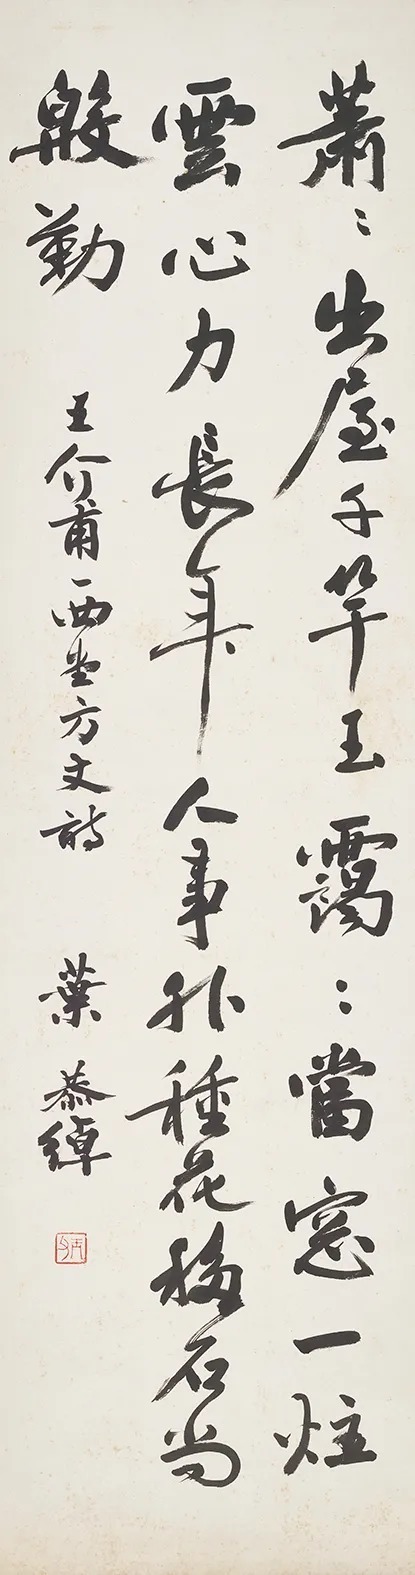 蕭〻出屋千竿玉靄〻當窓一炷
雲心力長年人事外種花移石尚
殷勤
王介甫西堂方丈詩
葉恭綽